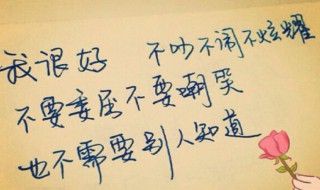 我很好 不吵不闹不炫耀
不要委屈不要嘲笑
也不需要别人知道